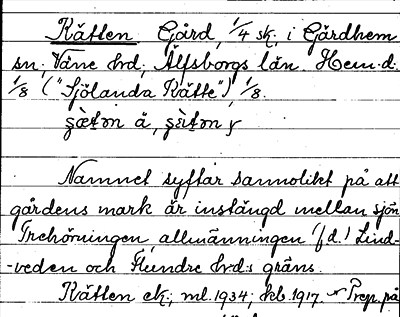 Kätten Gård, 1/4 sk. i Gärdhem
sn; Väne hrd; Älfsborgs län. Hem.d.
1/8 ("Sjölanda Kätte"), 1/8.
Namnet syftar sannolikt på att
gårdens mark är instängd mellan sjön
Trehörningen, allmänningen (f.d.) Lind-
-veden och Flundre hrd:s gräns.
Kätten ek; ml. 1934; kb. 1917. Prep. på